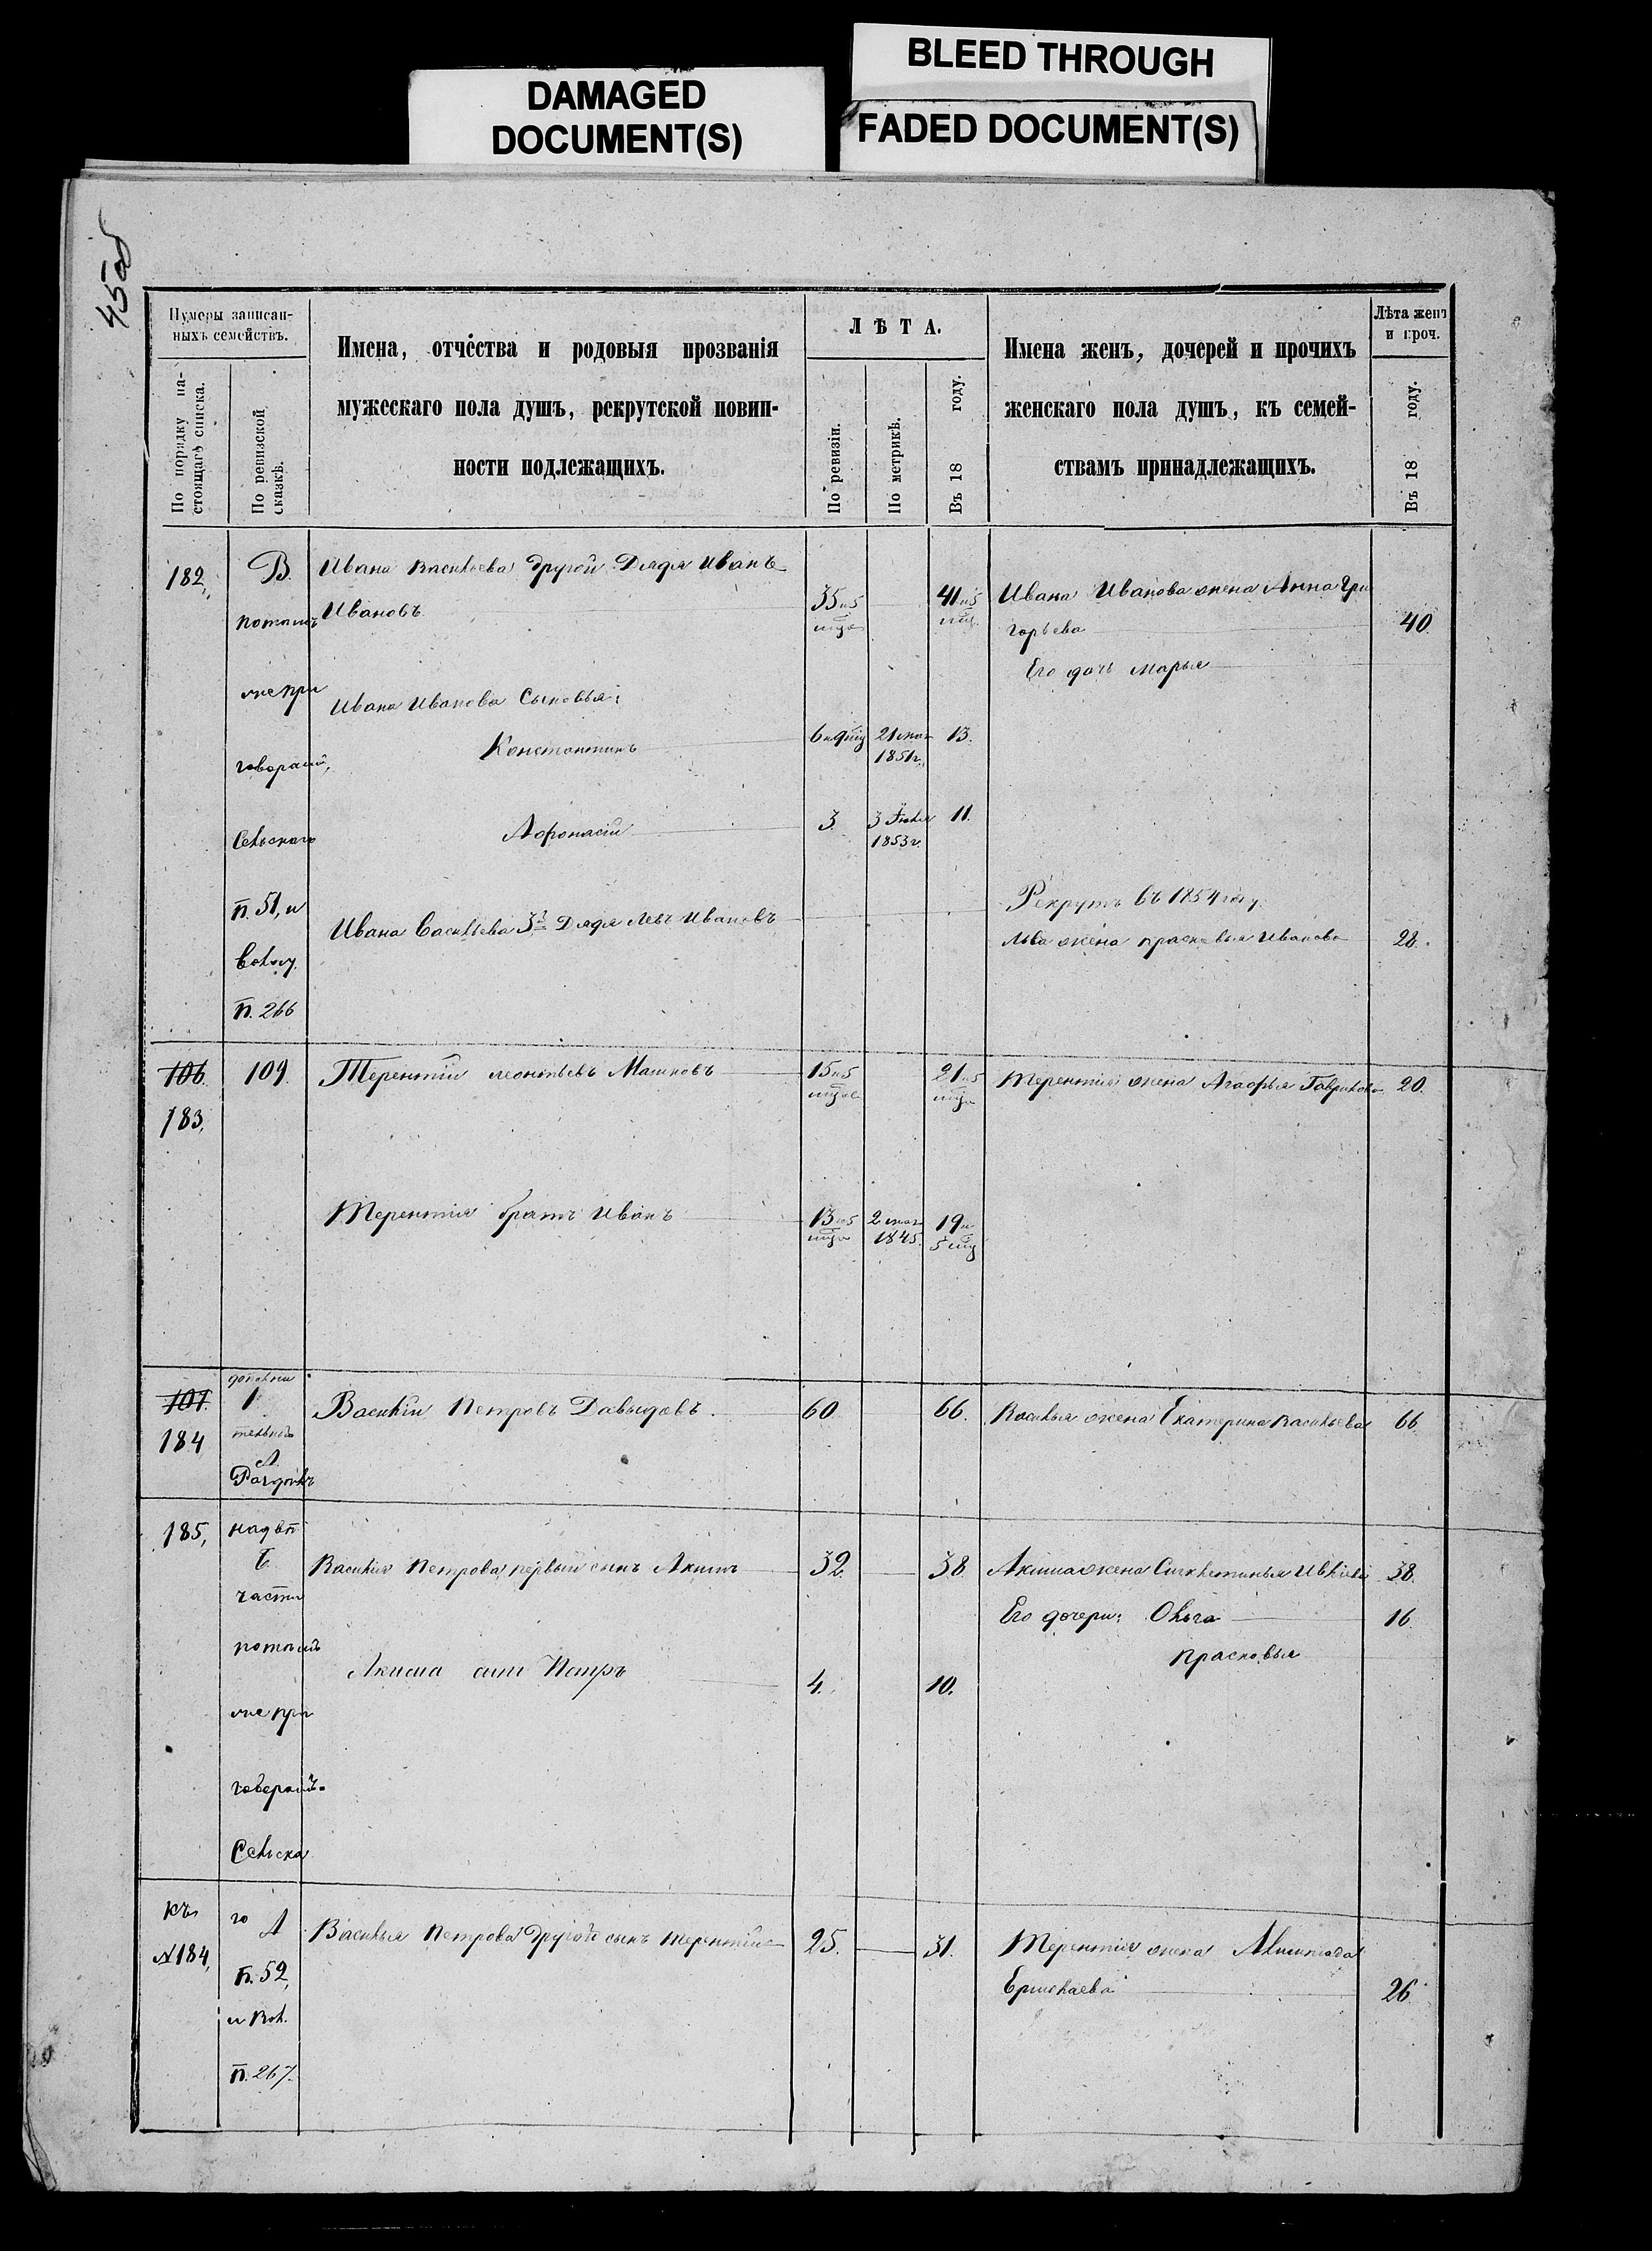 BLEED THROUGH
DAMAGED
DOCUMENT(S)
FADED DOCUMENT(S)
45об
Нумеры записан-
ныхъ семействъ.
По порядку на-
стоящаго списка.
По ревизской
сказкѣ.
Имена, отчества и родовыя прозванія
мужескаго пола душъ, рекрутской повин-
ности подлежащихъ.
ЛѢТА.
По ревизіи.
По метрикѣ.
Въ 18 году.
Имена женъ, дочерей и прочихъ
женскаго пола душъ, къ семей-
ствамъ принадлежащихъ.
Лѣта женъ
и проч.
Въ 18 году.
182,
В.
потомъ
же при
говорами,
Сельскаго
п. 51, и
Волос.
п. 266
Ивана Васильева другой Дядя Иванъ
Ивановъ
35 и 5
мцв
41 и 5
мц.
Ивана Иванова жена Анна Гри
горьева
40
Его дочь Марья
Ивана Иванова Сыновья:
Константинъ
6 и 9 мц
21 мая
1851 г.
13.
Афонасій
3
3 Генв
1853 г.
11.
Ивана Васильева 3й Дядя Левъ Ивановъ
Рекрутъ въ 1854 году.
Льва жена Прасковья Иванова
28.
106.
183,
109.
Терентій Леонтьевъ Машковъ
15 и 5
мцв
21 и 5
мцв
Терентія жена Агафья Гаврилова
20.
Терентія братъ Иванъ
13 и 5
мцв
2 мая
1845.
19 и
5 мц
107.
184
дополни
1
тельной
А
Раздѣлъ
Василій Петровъ Давыдовъ.
60
66.
Василья жена Екатерина Васильева
66
185,
надвѣ
Б
части
потомъ
же при
говорамъ
Сельска
Василія Петрова первый сынъ Акимъ
32.
38.
Акима жена Сиклетинья
38.
Его дочери: Ольга
16
Прасковья
Акима сынъ Петръ
4.
10.
Къ
№ 184,
го А
п. 52,
и Вол.
п. 267.
Василья Петрова другой сынъ Терентій
25.
31.
Терентія жена
Ермолаева
26